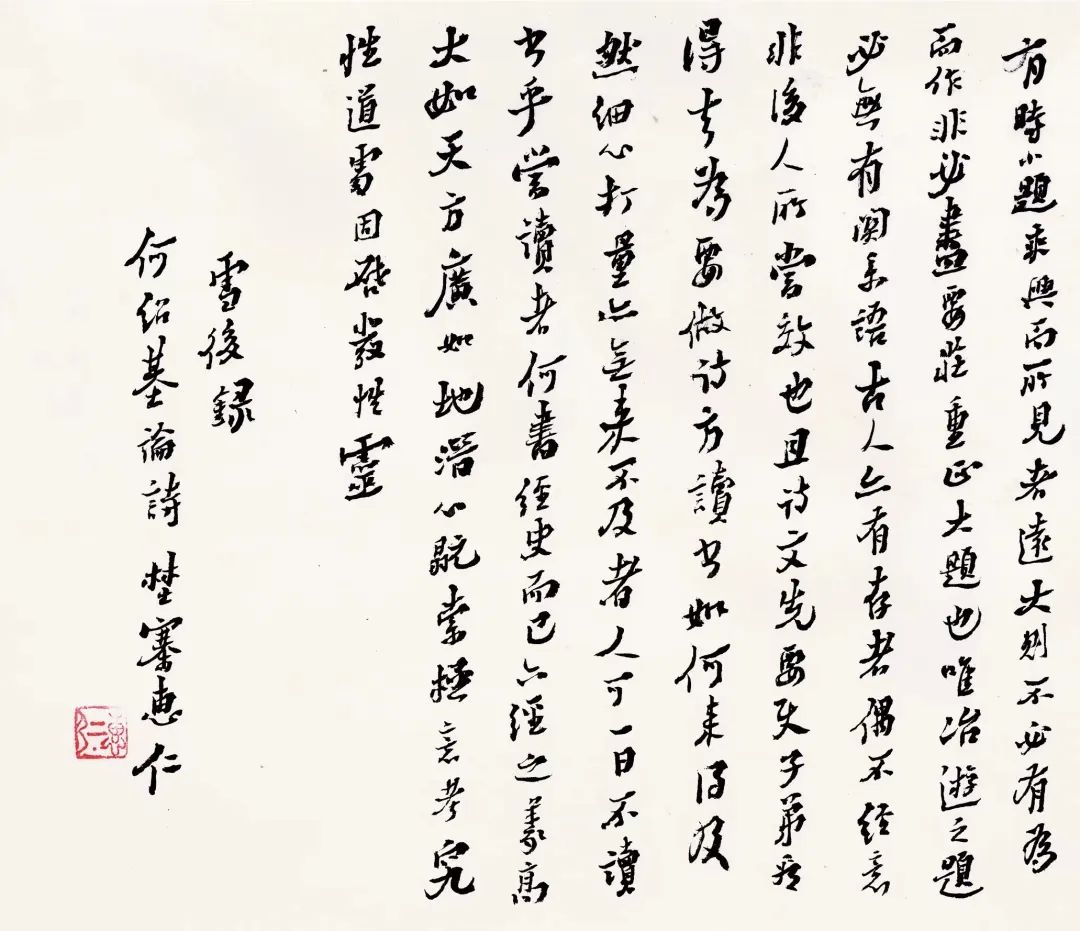 有時小題乘興而所見者遠大則不必有為
而作非必盡要莊重正大題也唯冶遊之題
必無有関系語古人亦有存者偶不經意
非後人所當效也且诗文先要子弟看
得去為要做诗方讀书如何来得及
然细心打量亦無来不及者人可一日不讀
书乎當讀者何書經史而已六經之義高
大如天方廣如地潛心翫索極意考究
性道處固啓發性靈
雪後録
何绍基論詩 埜寨惠仁
惠仁